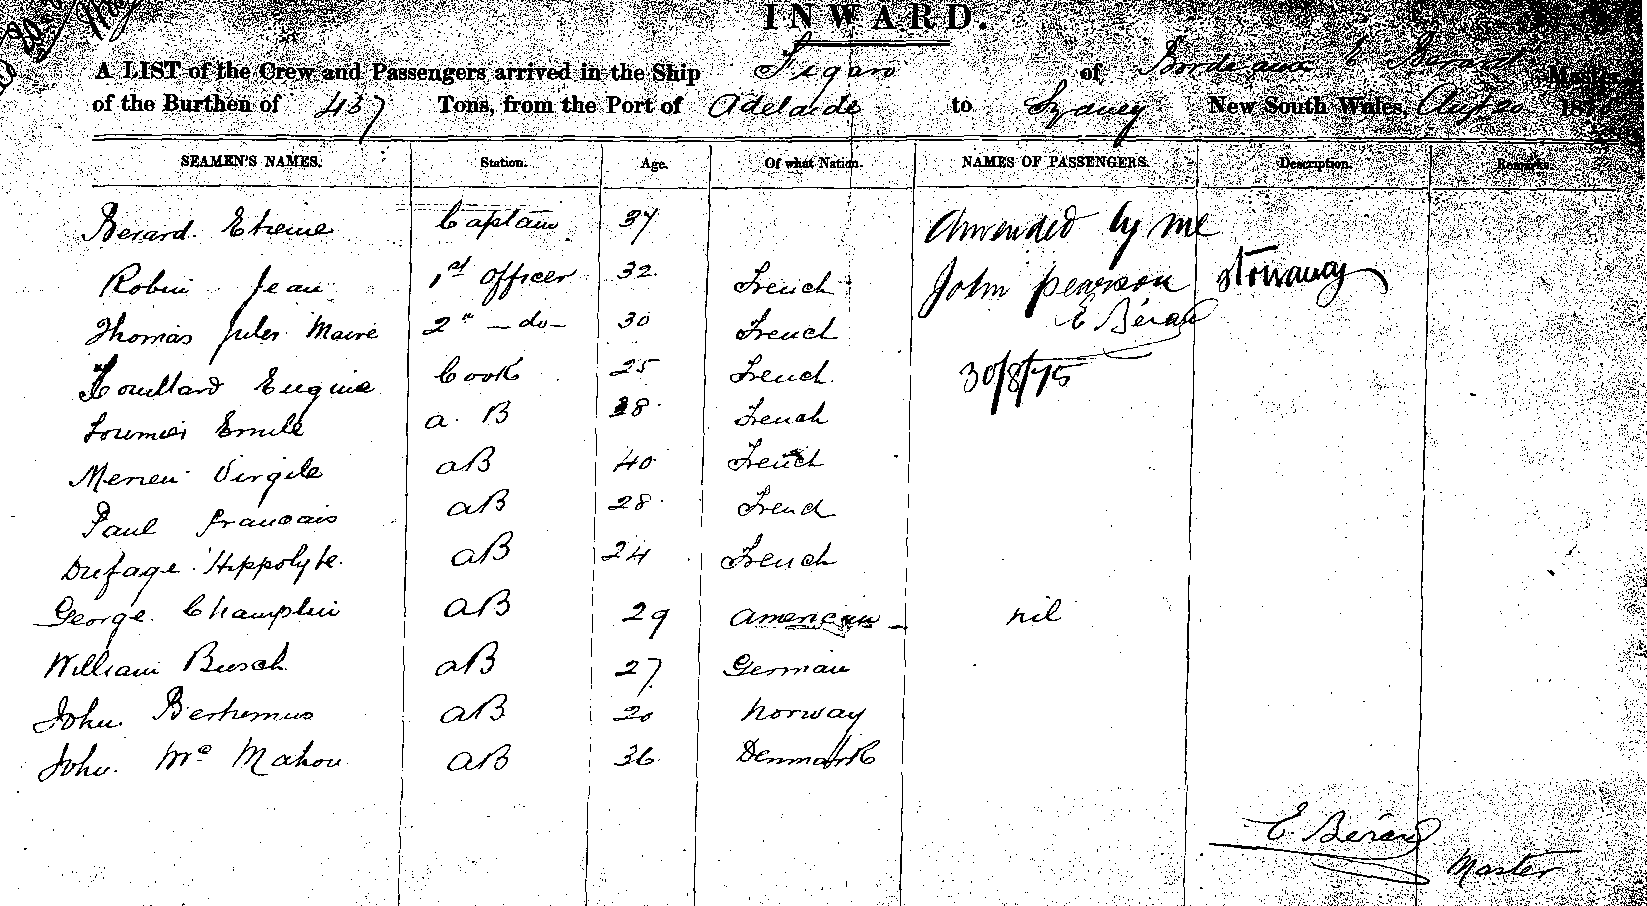 INWARD.
A LIST of the Crew and Passengers arrived in the Ship Figaro of Bordeaux E Berard Master
of the Burthen of 437 Tons, from the Port of Adelaide to Sydney New South Wales, Aug 20 187
SEAMEN'S NAMES. Station. Age. Of what Nation. NAMES OF PASSENGERS. Description. Remarks.
Berard Etienne Captain 37 Amended by me
Robin Jean 1st Officer 32 French John Pearson Stowaway
Thomas Jules Marie 2n -do- 30 French E Bérard
Eugine Cook 25 French 30/8/75
Emile a. B 28 French
Virgile aB 40 French
Paul Francais aB 28 French
Dufage Hippolyte aB 24 French
George Champlin aB 29 American nil
William Busch aB 27 German
John aB 20 Norway
John Mc Mahon aB 36 Denmark
E Bérard
Master